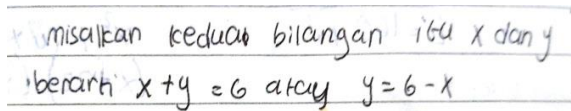 misalkan kedua bilangan itu x dan y
berarti x + y = 6 atau y = 6 - x